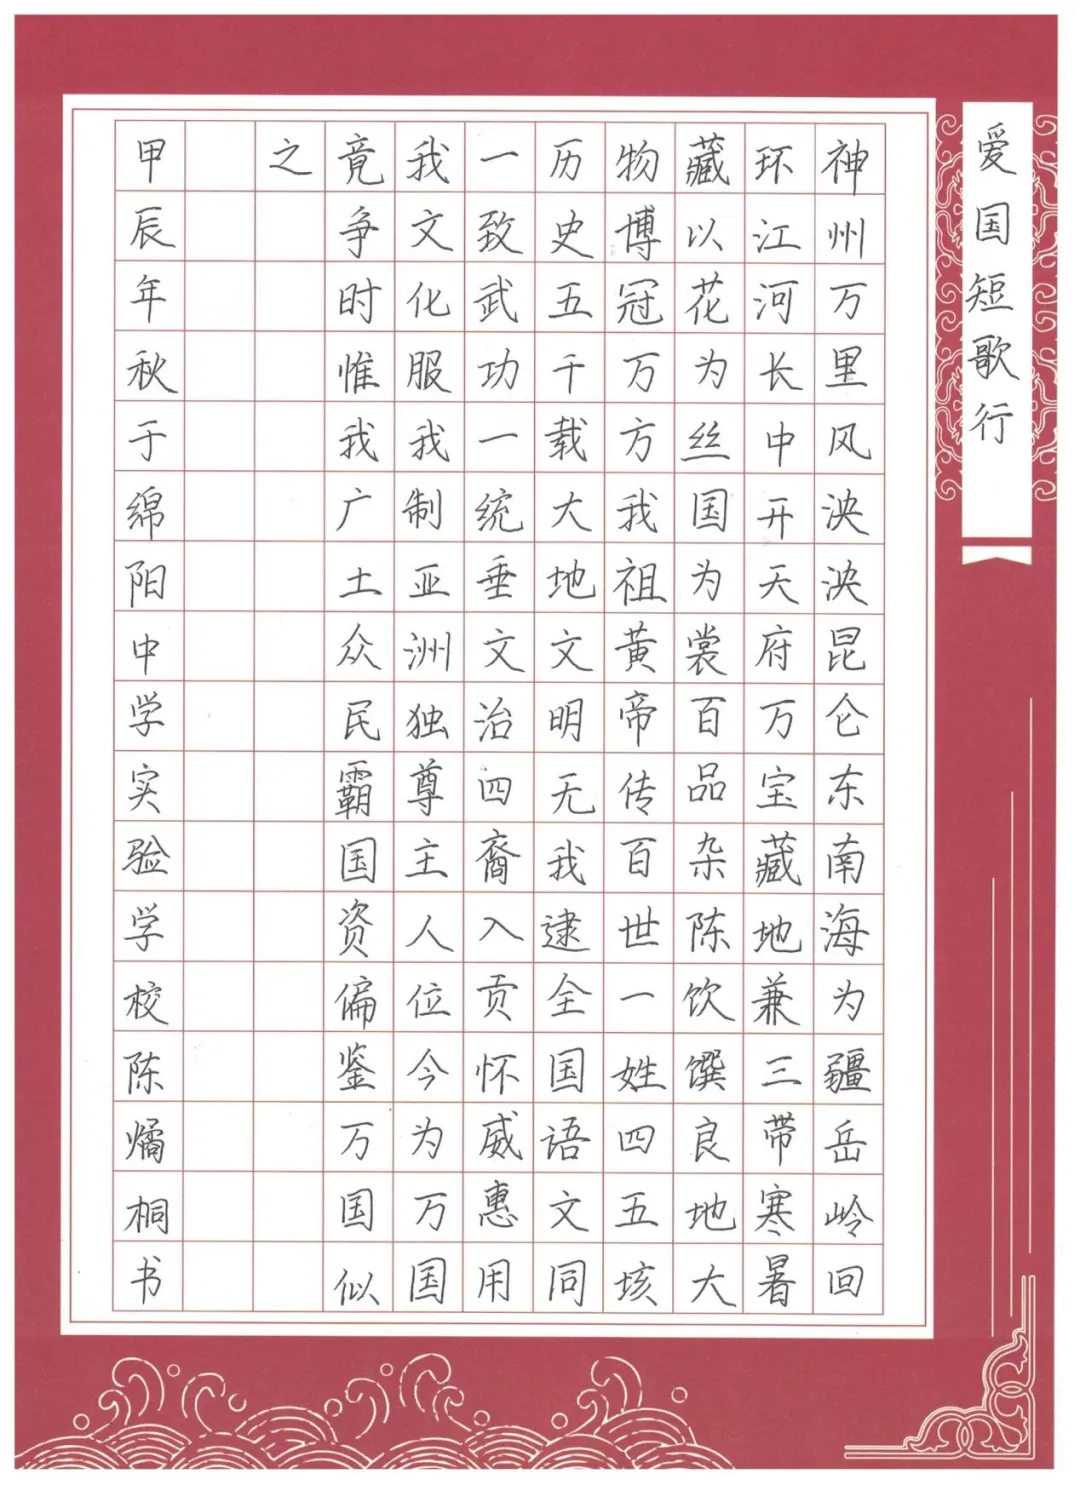 爱国短歌行
神州万里风泱泱昆仑东南海为疆岳岭回
环江河长中开天府万宝藏地兼三带寒暑
藏以花为丝国为裳百品杂陈饮馔良地大
物博冠万方我祖黄帝传百世一姓四五垓
历史五千载大地文明无我逮全国语文同
一致武功一统垂文治四裔入贡怀威惠用
我文化服我制亚洲独尊主人位今为万国
竟争时惟我广土众民霸国资偏鉴万国似
之
甲辰年秋于绵阳中学实验学校陈燏桐书